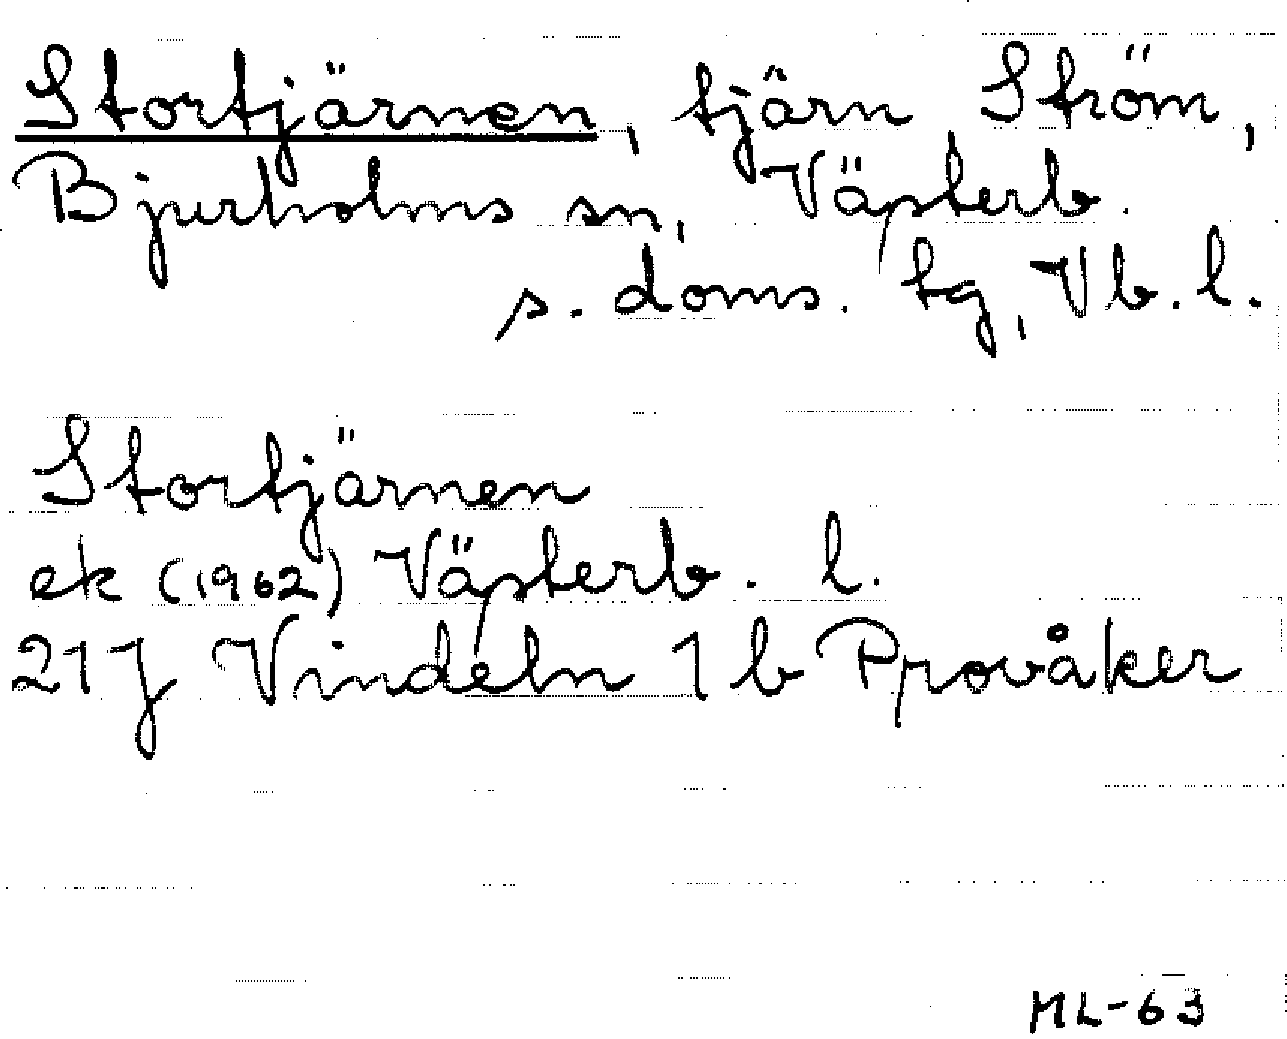 Stortjärnen, tjärn Ström,
Bjurholms sn, Västerb.
s. doms. tg, Vb. l.
Stortjärnen
ek (1962) Västerb. l.
21 J Vindeln 1 b Provåker
ML-63